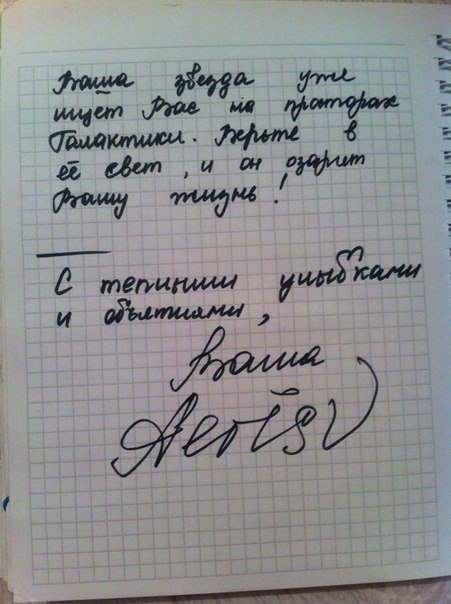 Ваша звезда уже
ищет Вас на просторах
Галактики. Верьте в
её свет, и он озарит
Вашу жизнь!
С теплыми улыбками
и объятиями,
Ваша